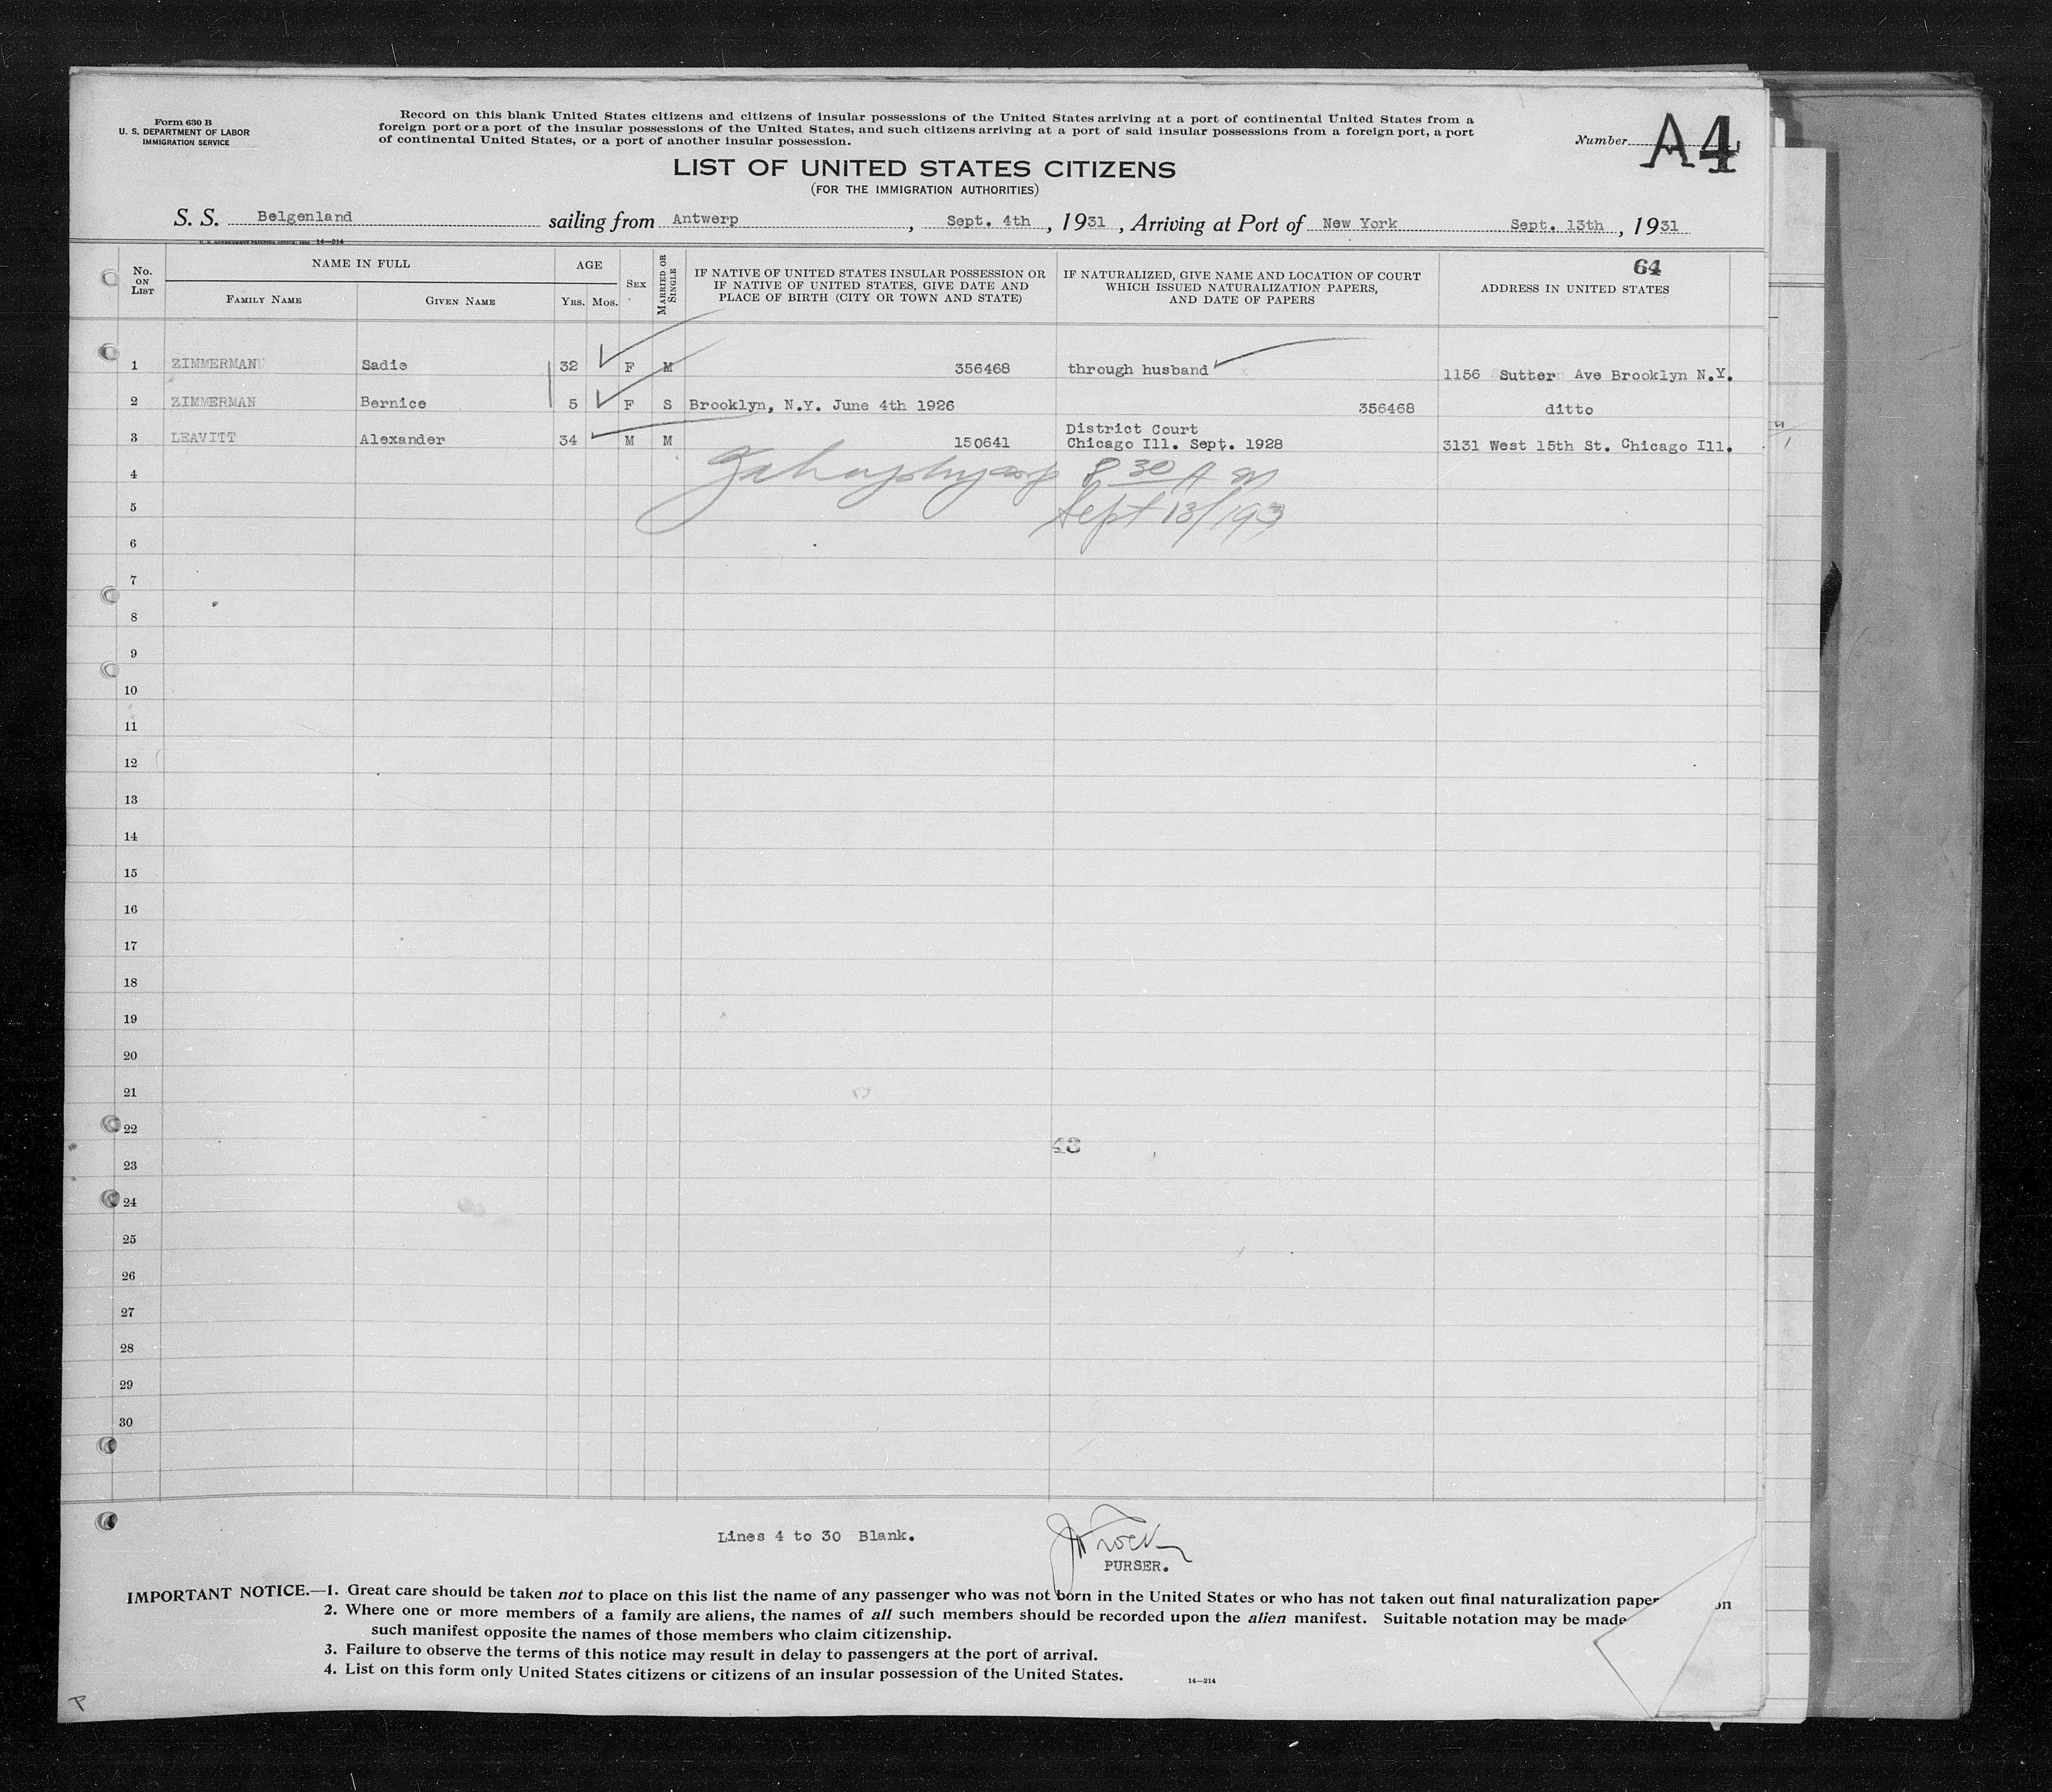 Form 630 B
U. S. DEPARTMENT OF LABOR
IMMIGRATION SERVICE
Record on this blank United States citizens and citizens of insular possessions of the United States arriving at a port of continental United States from a
foreign port or a port of the insular possessions of the United States, and such citizens arriving at a port of said insular possessions from a foreign port, a port
of continental United States, or a port of another insular possession.
Number A4
LIST OF UNITED STATES CITIZENS
(FOR THE IMMIGRATION AUTHORITIES)
S. S. Belgenland sailing from Antwerp, Sept. 4th, 1931, Arriving at Port of New York Sept. 13th, 1931
14—214
64
No. ON LIST
NAME IN FULL
FAMILY NAME
GIVEN NAME
AGE
YRS. MOS.
SEX
MARRIED OR SINGLE
IF NATIVE OF UNITED STATES INSULAR POSSESSION OR
IF NATIVE OF UNITED STATES, GIVE DATE AND
PLACE OF BIRTH (CITY OR TOWN AND STATE)
IF NATURALIZED, GIVE NAME AND LOCATION OF COURT
WHICH ISSUED NATURALIZATION PAPERS,
AND DATE OF PAPERS
ADDRESS IN UNITED STATES
1 ZIMMERMAN Sadie 32 F M 356468 through husband 1156 Sutter Ave Brooklyn N.Y.
2 ZIMMERMAN Bernice 5 F S Brooklyn, N.Y. June 4th 1926 356468 ditto
3 LEAVITT Alexander 34 M M 150641 District Court
Chicago Ill. Sept. 1928 3131 West 15th St. Chicago Ill.
4 8 30 A M
5 Sept 13/193
6
7
8
9
10
11
12
13
14
15
16
17
18
19
20
21
22
43
23
24
25
26
27
28
29
30
Lines 4 to 30 Blank.
PURSER.
IMPORTANT NOTICE.—1. Great care should be taken not to place on this list the name of any passenger who was not born in the United States or who has not taken out final naturalization paper
2. Where one or more members of a family are aliens, the names of all such members should be recorded upon the alien manifest. Suitable notation may be made on
such manifest opposite the names of those members who claim citizenship.
3. Failure to observe the terms of this notice may result in delay to passengers at the port of arrival.
4. List on this form only United States citizens or citizens of an insular possession of the United States.
14—214
P